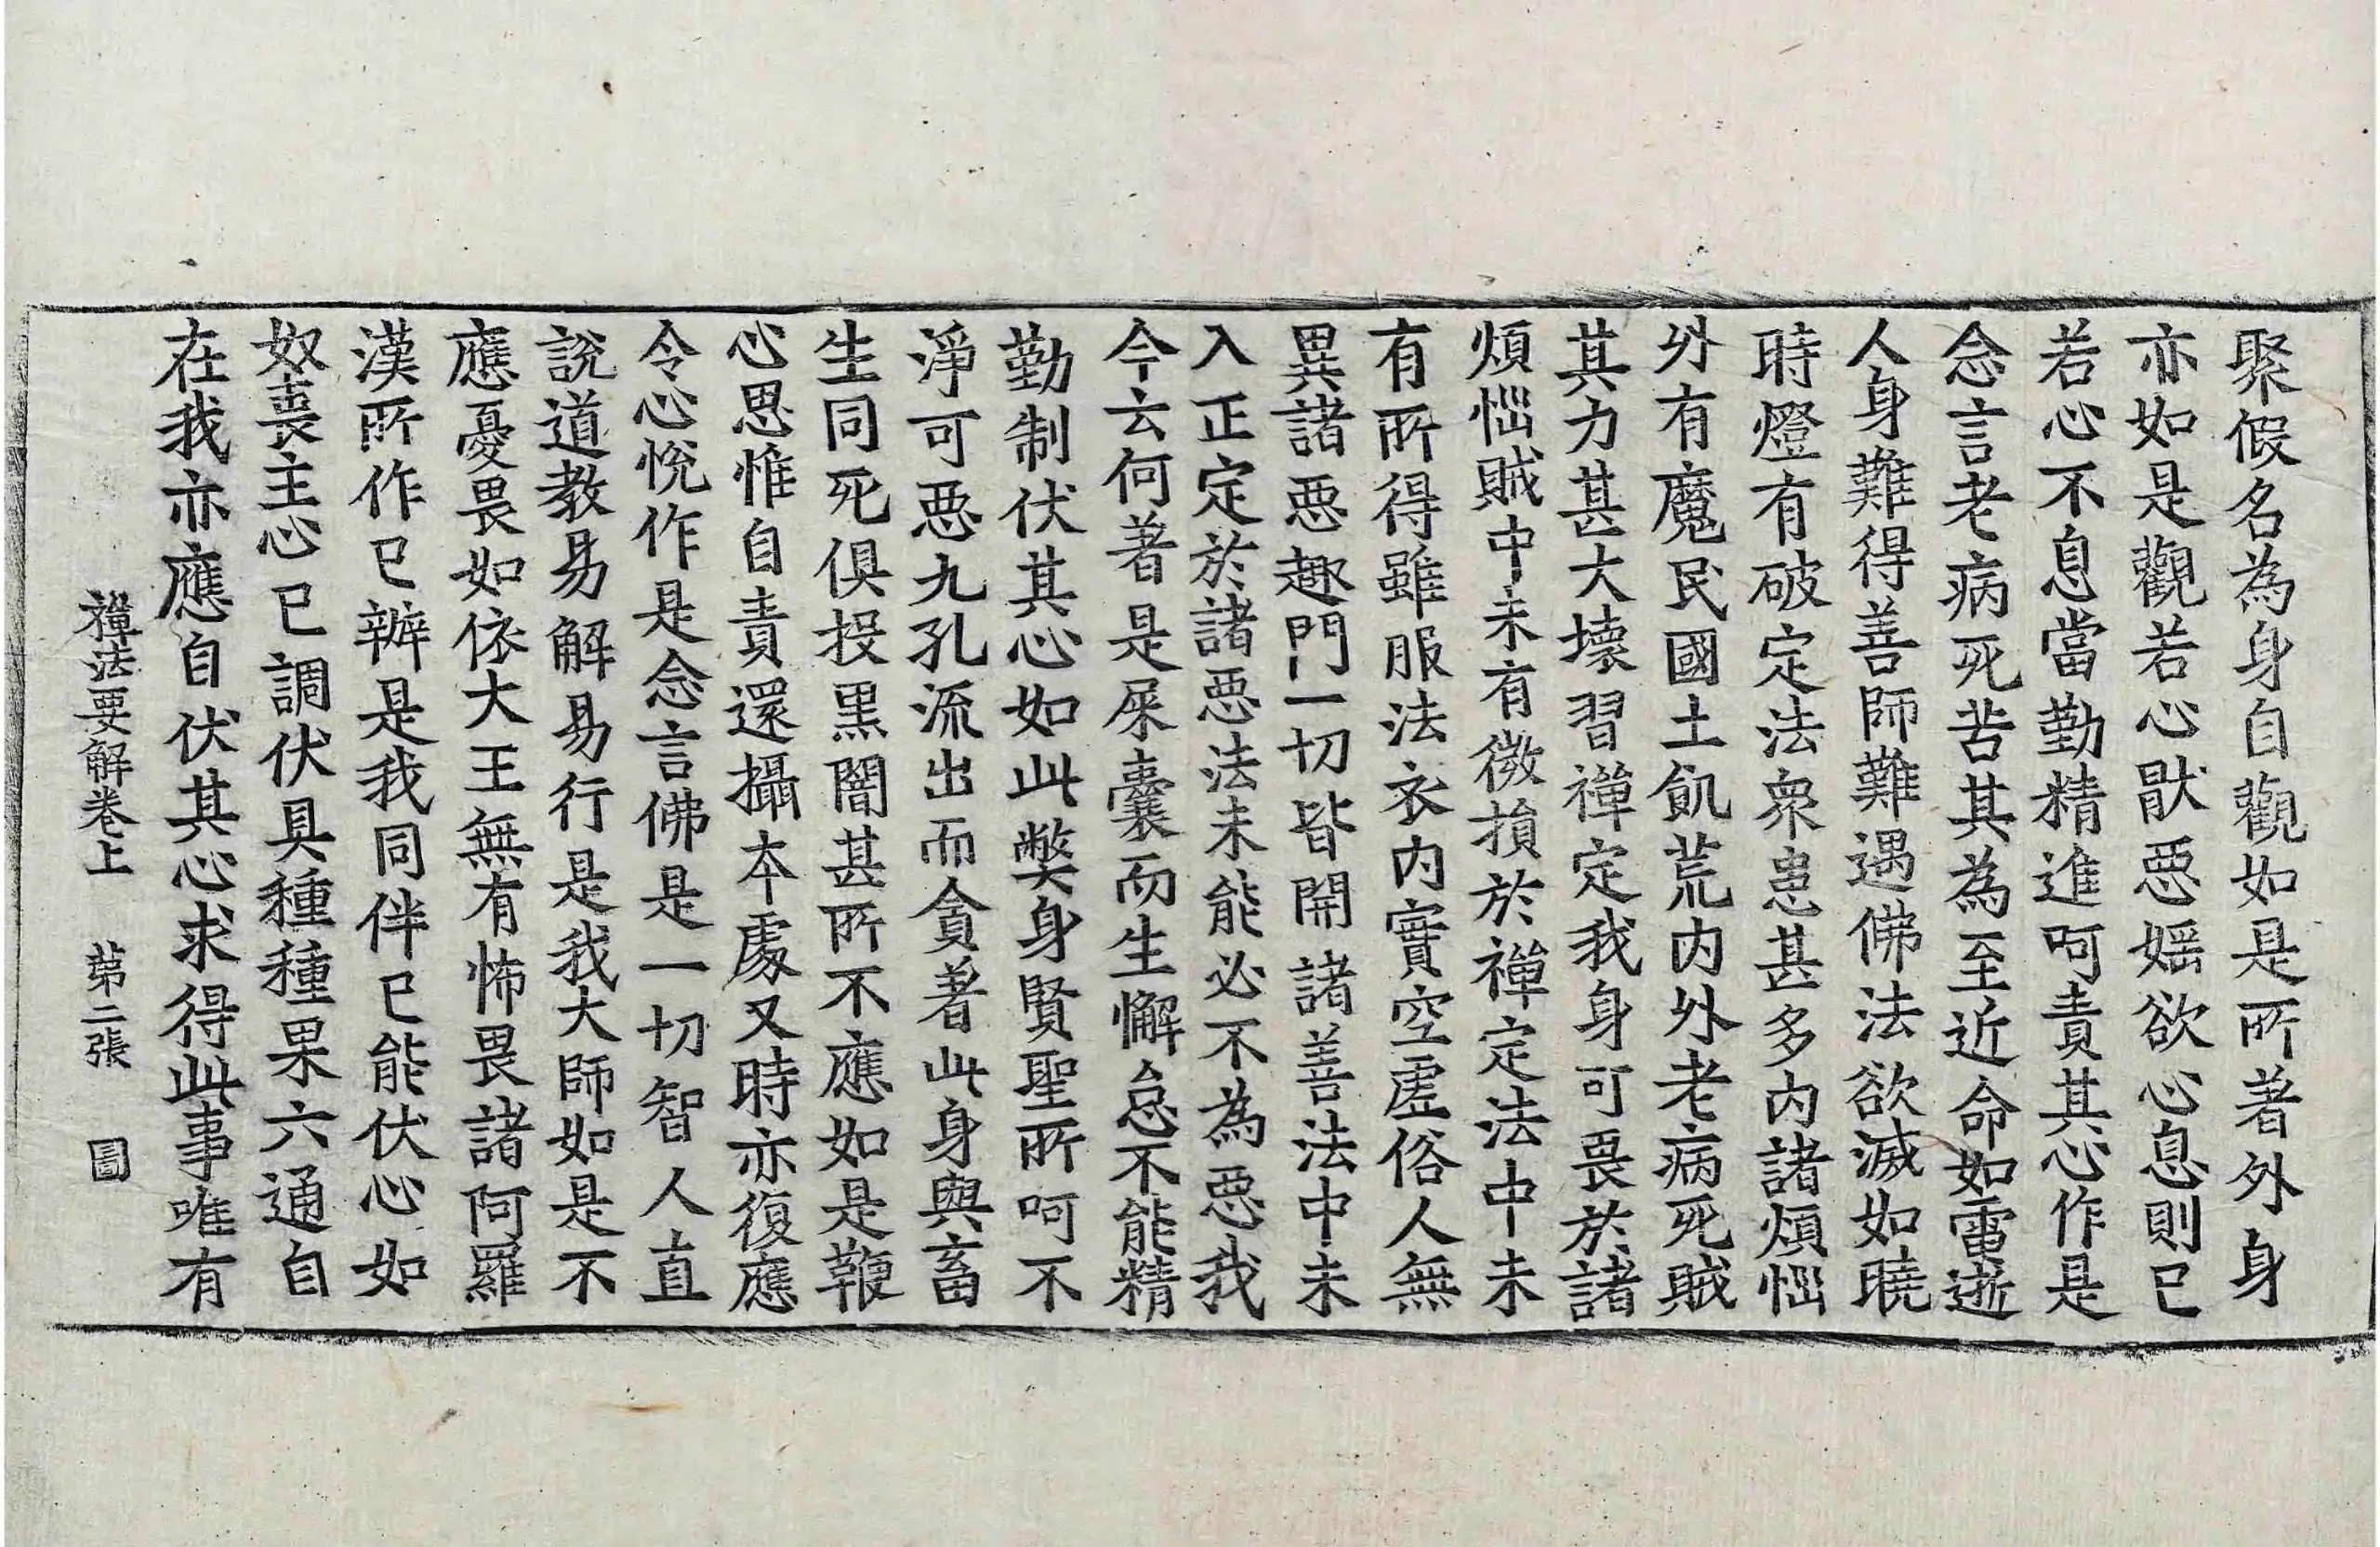 聚假名為身自觀如是所著外身
亦如是觀若心猒惡婬欲心息則已
若心不息當勤精進呵責其心作是
念言老病死苦其為至近命如電逝
人身難得善師難遇佛法欲滅如曉
時燈有破定法衆患甚多内諸煩惱
外有魔民國土飢荒内外老病死賊
其力甚大壞習禪定我身可畏於諸
煩惱賊中未有微損於禪定法中未
有所得雖服法衣内實空虛俗人無
異諸惡趣門一切皆開諸善法中未
入正定於諸惡法未能必不為惡我
今云何著是屎囊而生懈怠不能精
勤制伏其心如此弊身賢聖所呵不
淨可惡九孔流出而貪著此身與畜
生同死俱投黒闇甚所不應如是鞭
心思惟自責還攝本處又時亦復應
令心悅作是念言佛是一切智人直
說道教易解易行是我大師如是不
應憂畏如依大王無有怖畏諸阿羅
漢所作已辦是我同伴已能伏心如
奴喪主心已調伏具種種果六通自
在我亦應自伏其心求得此事唯有
禪法要解卷上 第二張 圖